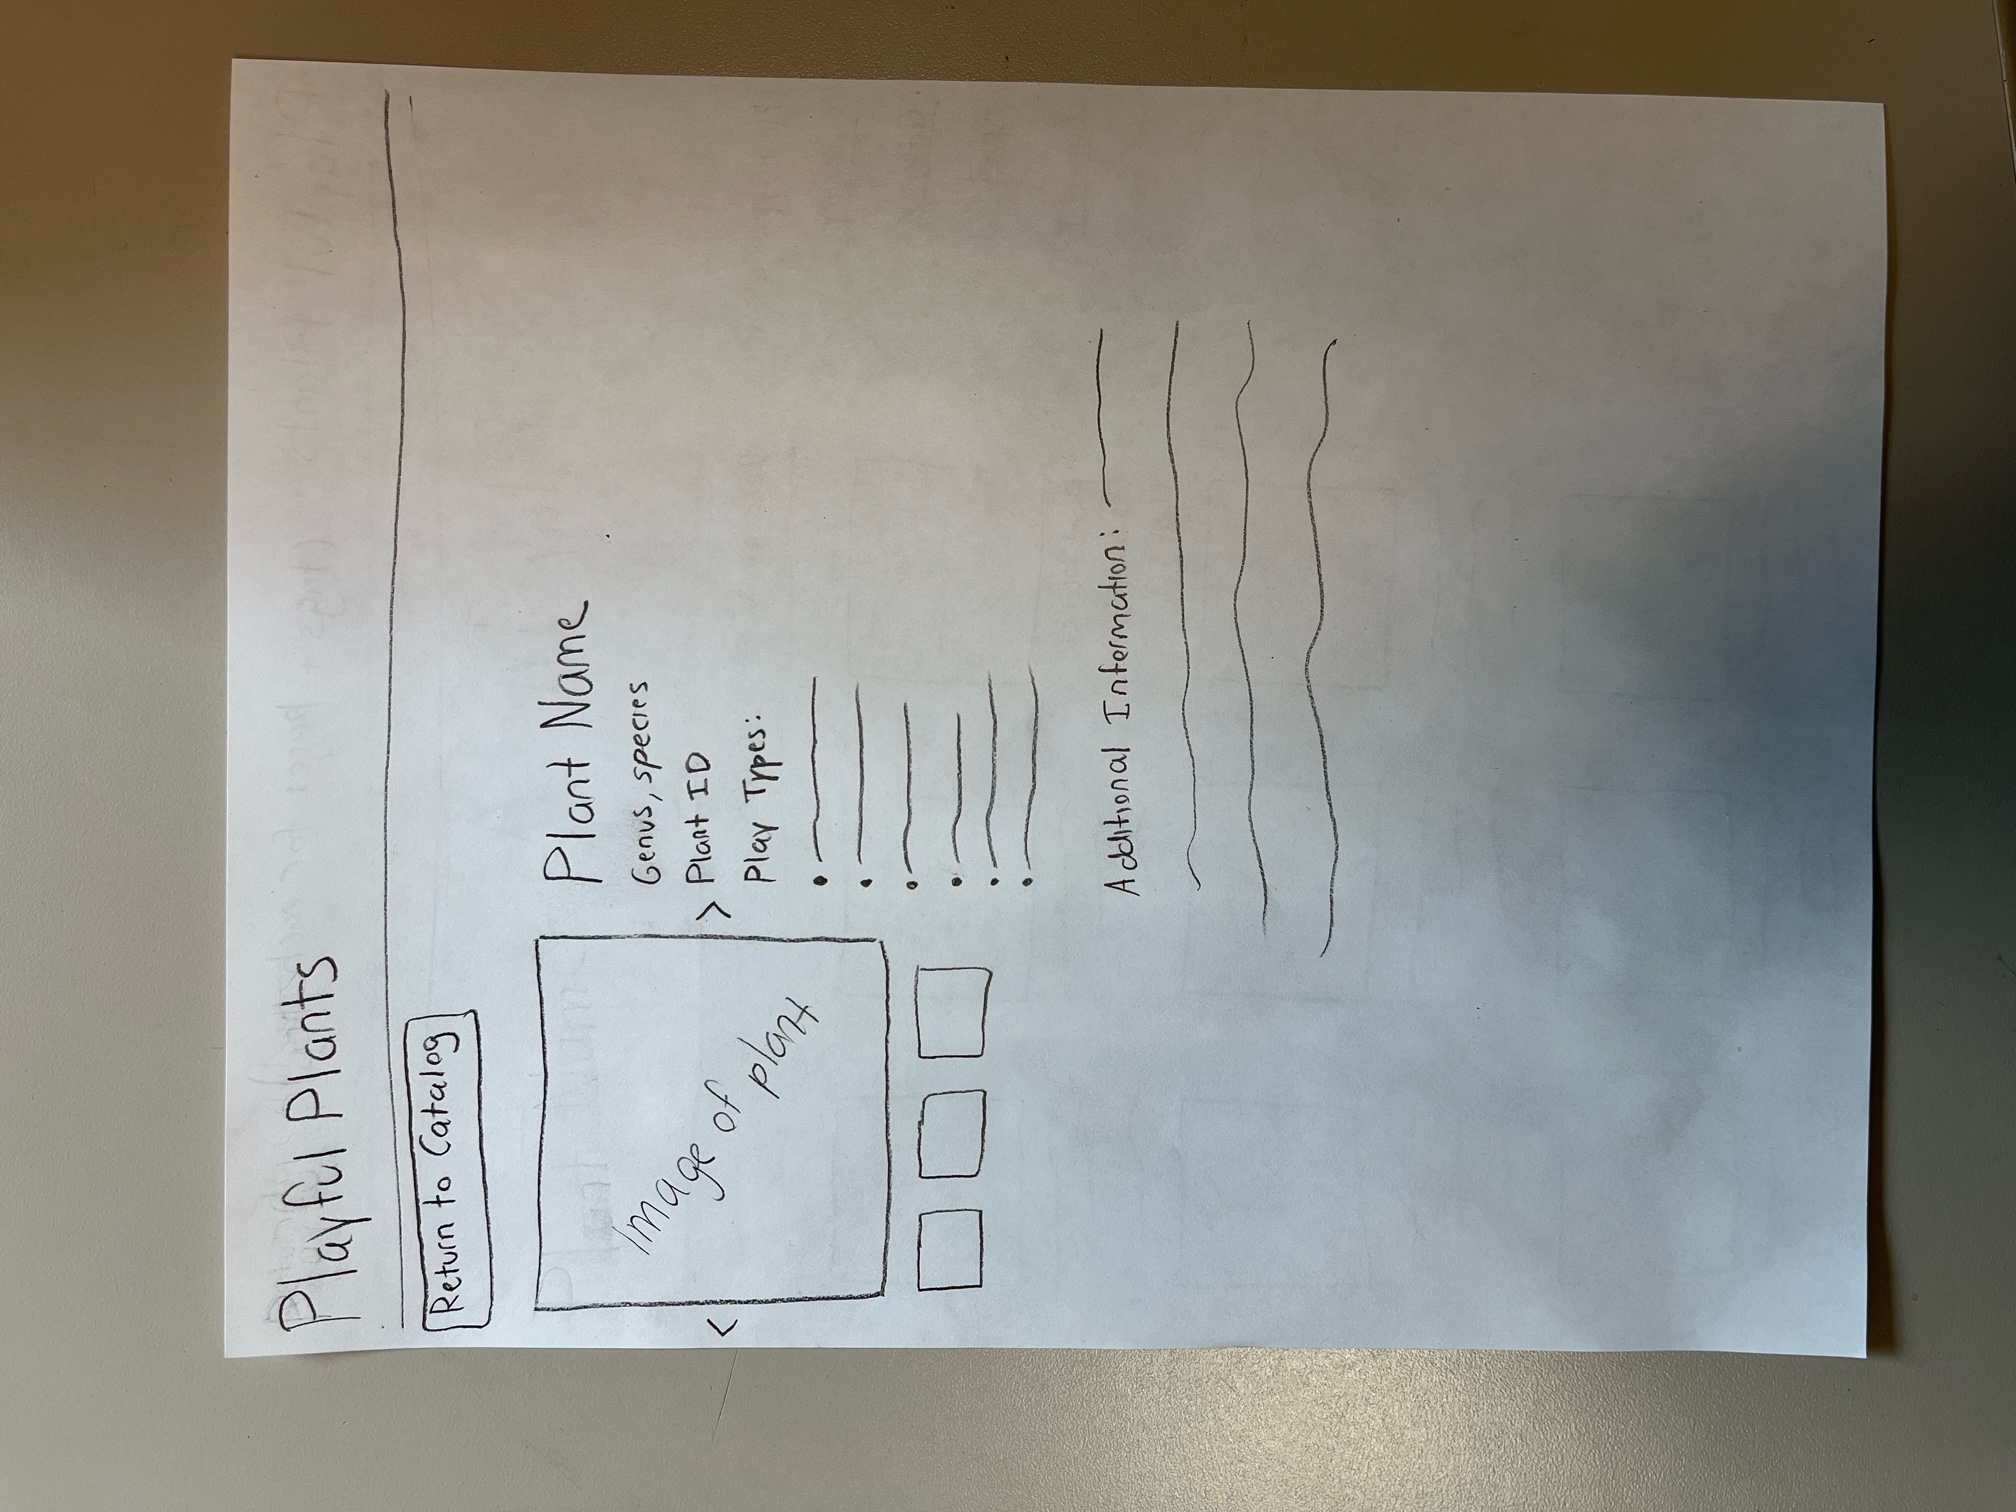 Playful Plants
Return to Catalog
Image of plant
<
>
Plant Name
Genus, species
Plant ID
Play Types:
Additional Information: